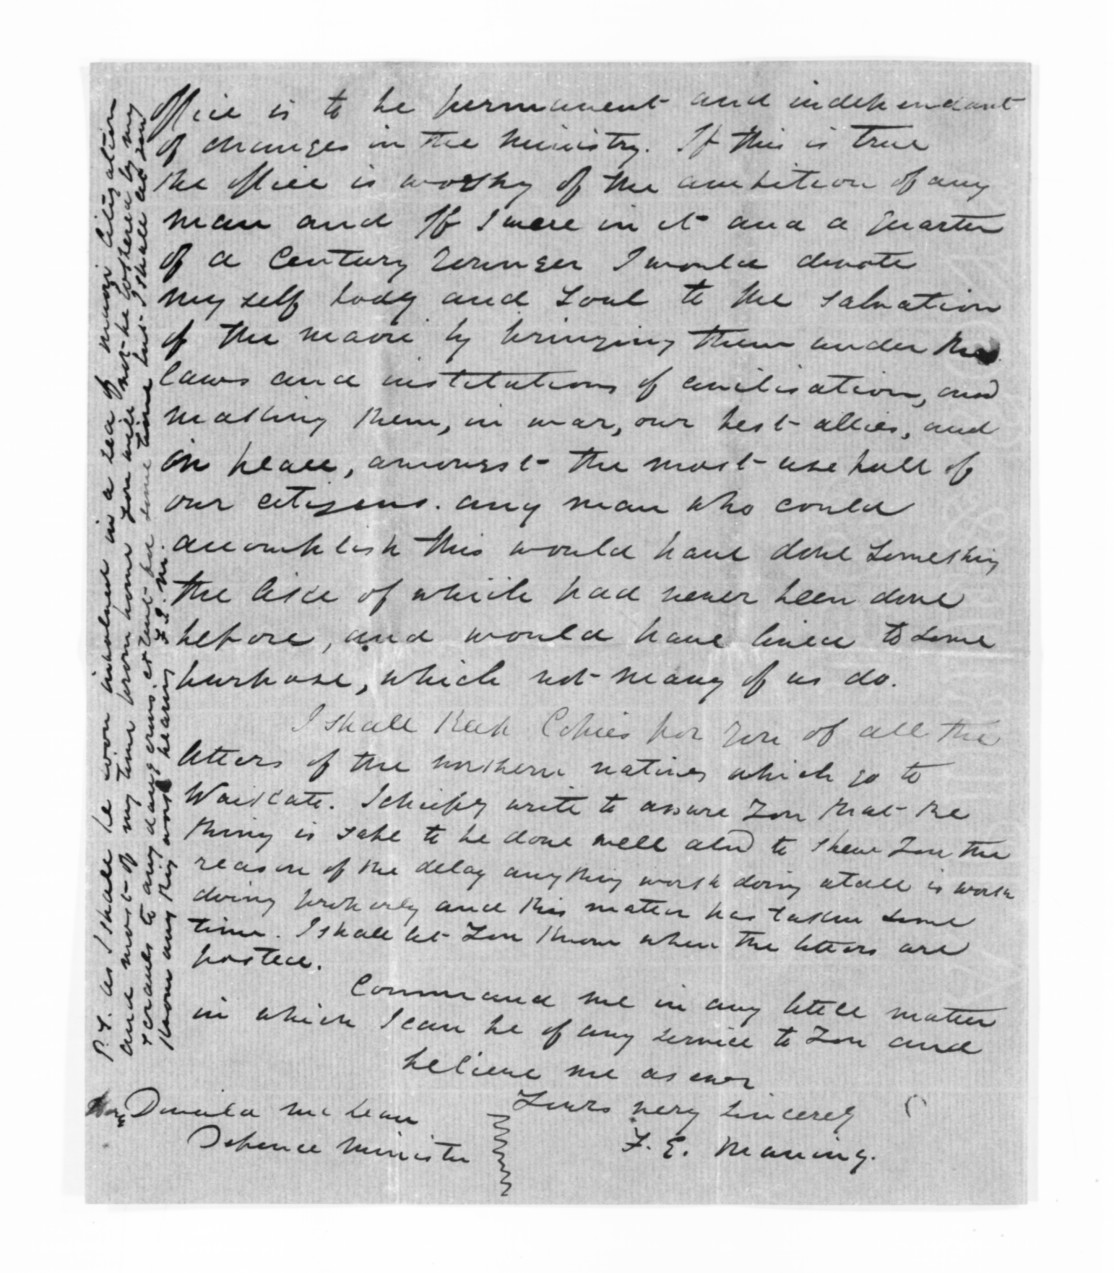 office is to be permanent and independant
of changes in the Ministry. If this is true
the office is worthy of the ambition of any
man and If I were in it and a quarter
of a century younger I would devote
myself body and soul to the salvation
of the maori by bringing them under the
laws and institutions of civilisation, and
making them, in war, our best allies, and
in peace, amongst the most usefull of
our citizens. any man who could
accomplish this would have done something
the like of which had never been done
before, and would have lived to some
purpose, which not many of us do.
I shall keep Copies for you of all the
letters of the northern natives which go to
Waikato. I chiefly write to assure you that the
thing is safe to be done well and to shew you the
reason of the delay anything worth doing atall is worth
doing properly and this matter has taken some
time. I shall let you know when the letters are
posted.
Command me in any little matter
in which I can be of any service to you and
believe me as ever
Yours very sincerely
F. E. Maning.
Hon Donald McLean
Defence Minister
P.S. as I shall be soon involved in a sea of
and most of my time from home you will not be bothered by my
scrawls to any dangerous extent for some time but I shall let you
know any thing worth hearing F. E. M.